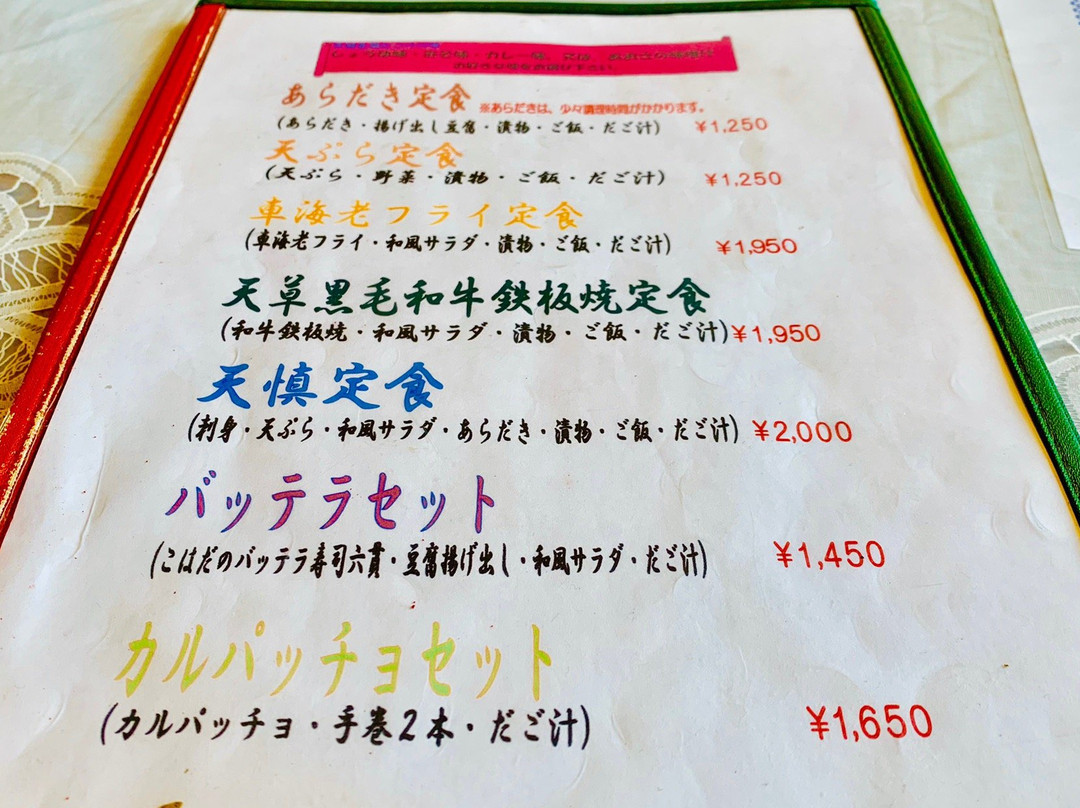 あらだき定食 ※あらだきは、少々調理時間がかかります。
(あらだき・揚げ出し豆腐・漬物・ご飯・だご汁) ¥1,250
天ぷら定食
(天ぷら・野菜・漬物・ご飯・だご汁) ¥1,250
車海老フライ定食
(車海老フライ・和風サラダ・漬物・ご飯・だご汁) ¥1,950
天草黒毛和牛鉄板焼定食
(和牛鉄板焼・和風サラダ・漬物・ご飯・だご汁) ¥1,950
天慎定食
(刺身・天ぷら・和風サラダ・あらだき・漬物・ご飯・だご汁) ¥2,000
バッテラセット
(こはだのバッテラ寿司六貫・豆腐揚げ出し・和風サラダ・だご汁) ¥1,450
カルパッチョセット
(カルパッチョ・手巻2本・だご汁) ¥1,650